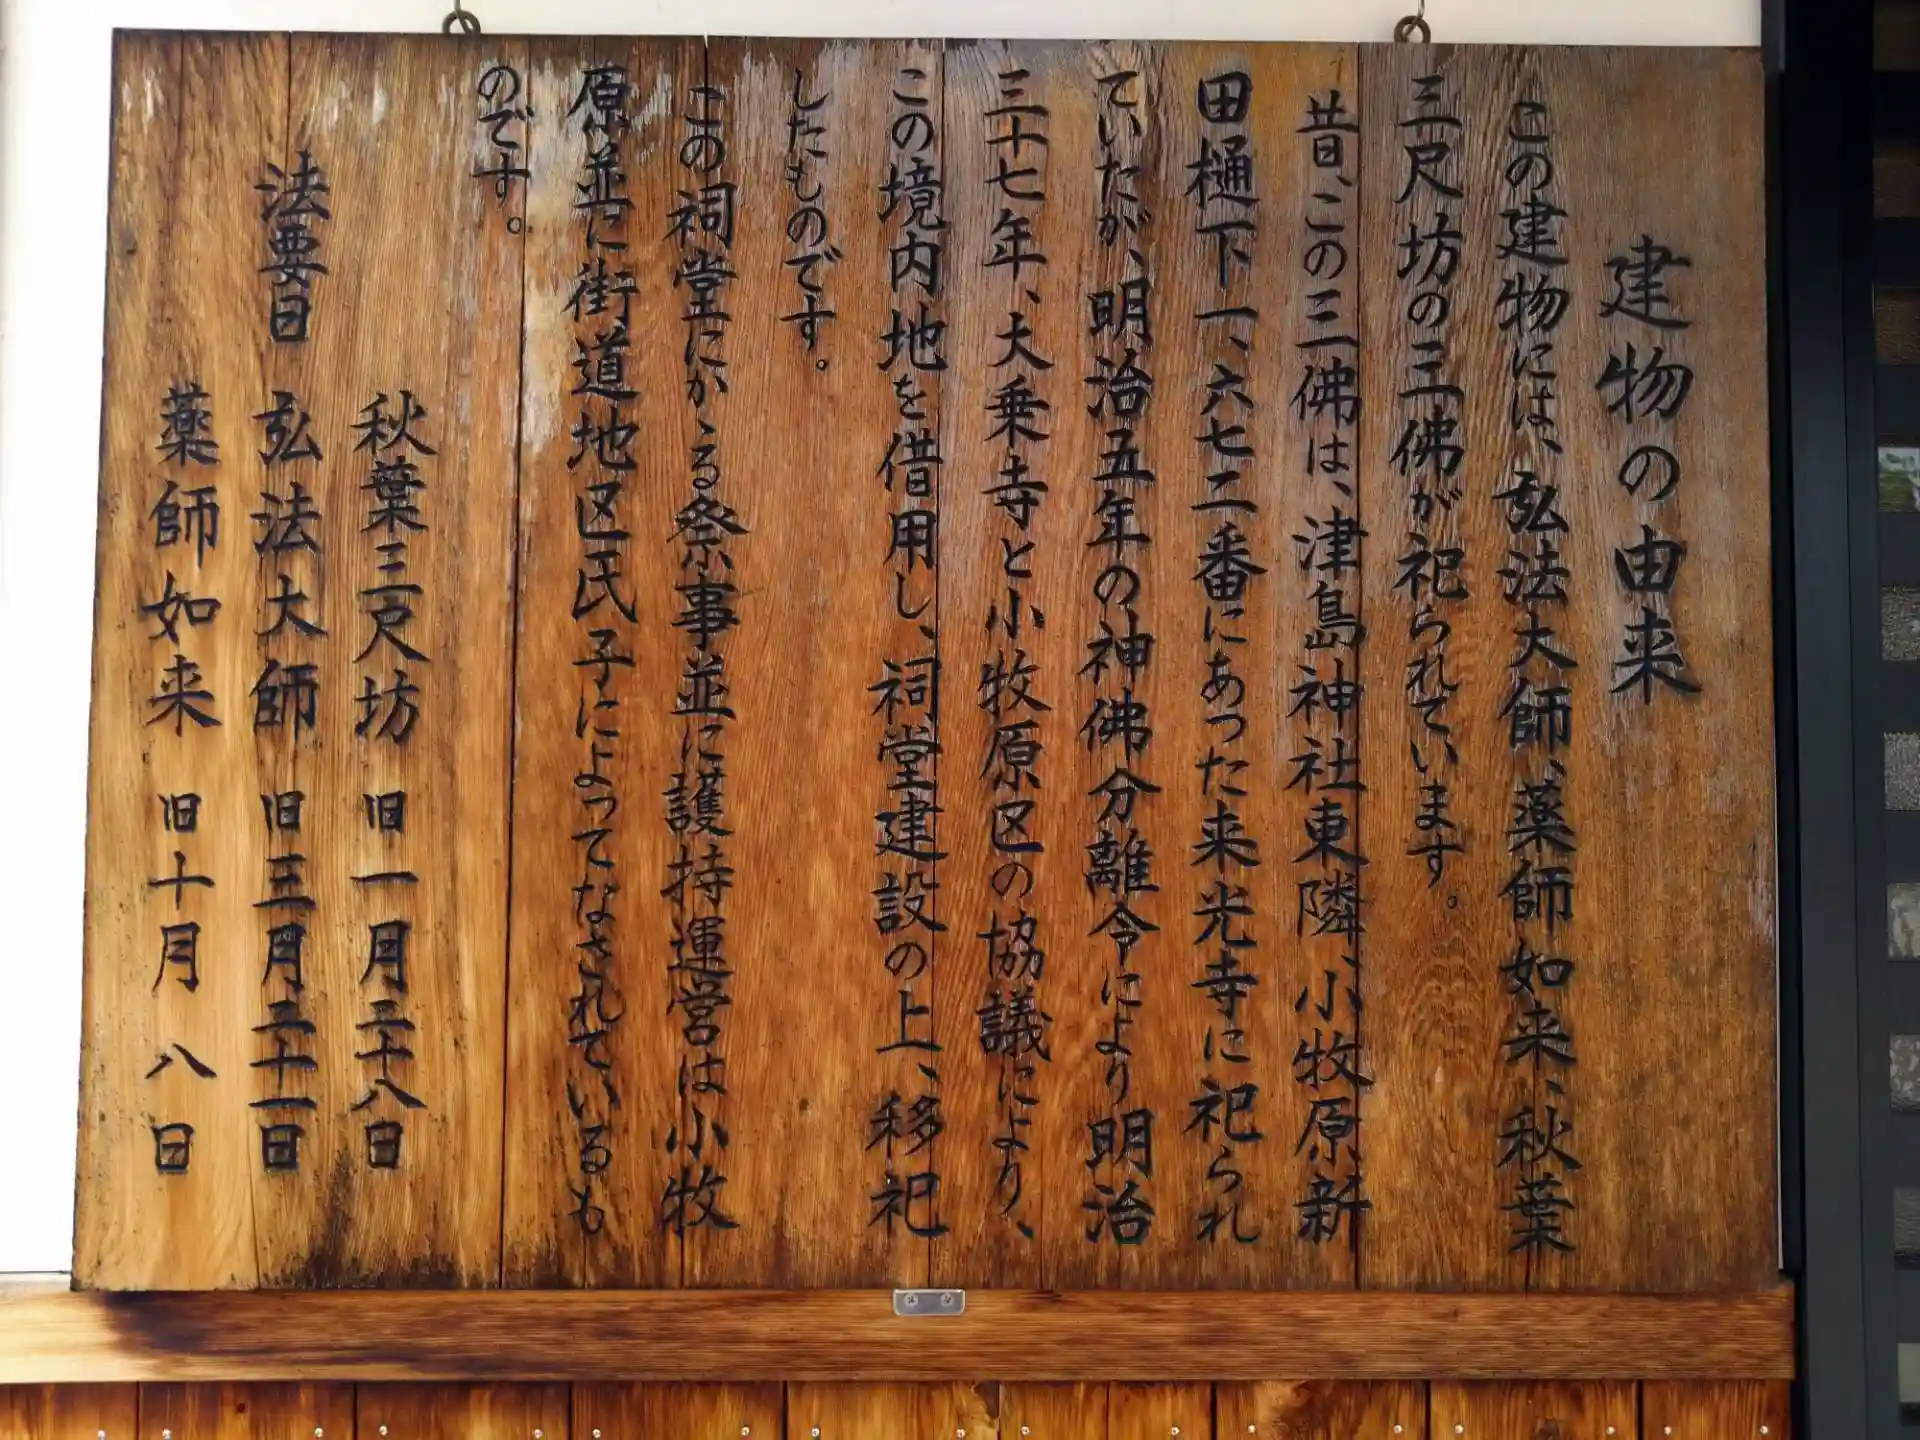 建物の由来
この建物には、弘法大師、薬師如来、秋葉
三尺坊の三佛が祀られています。
昔、この三佛は、津島神社東隣、小牧原新
田樋下一、六七二番にあった来光寺に祀られ
ていたが、明治五年の神佛分離令により明治
三十七年、大乗寺と小牧原区の協議により、
この境内地を借用し、祠堂建設の上、移祀
したものです。
この祠堂にかゝる祭事並に護持運営は小牧
原並に街道地区氏子によってなされているも
のです。
秋葉三尺坊 旧一月二十八日
法要日 弘法大師 旧三月二十一日
薬師如来 旧十月八日